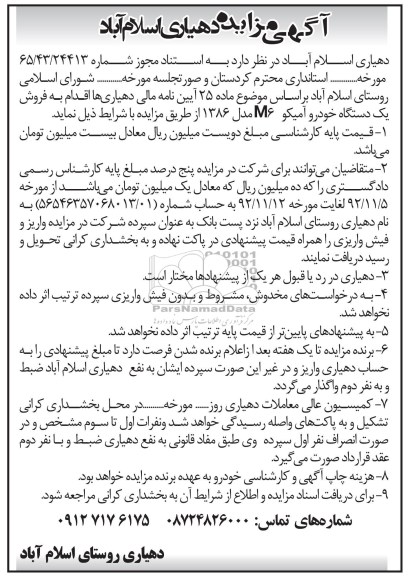 آگهی مزایده دهیاری اسلام آباد
دهیاری اسلام آباد در نظر دارد به استناد مجوز شماره ۶۵/۴۳/۲۴۴۱۳
مورخه............ استانداری محترم کردستان و صورتجلسه مورخه............ شورای اسلامی
روستای اسلام آباد براساس موضوع ماده ۲۵ آیین نامه مالی دهیاری‌ها اقدام به فروش
یک دستگاه خودرو آمیکو M6 مدل ۱۳۸۶ از طریق مزایده با شرایط ذیل نماید.
۱- قیمت پایه کارشناسی مبلغ دویست میلیون ریال معادل بیست میلیون تومان
می‌باشد.
۲- متقاضیان می‌توانند برای شرکت در مزایده پنج درصد مبلغ پایه کارشناس رسمی
دادگستری را که ده میلیون ریال که معادل یک میلیون تومان می‌باشد از مورخه
۹۲/۱۱/۵ لغایت مورخه ۹۲/۱۱/۱۲ به حساب شماره (۵۶۵۴۶۳۵۷۰۶۸۰۱۳/۰۱) به
نام دهیاری روستای اسلام آباد نزد پست بانک به عنوان سپرده شرکت در مزایده واریز و
فیش واریزی را همراه قیمت پیشنهادی در پاکت نهاده و به بخشداری کرانی تحویل و
رسید دریافت نمایند.
۳- دهیاری در رد یا قبول هر یک از پیشنهادها مختار است.
۴- به درخواست‌های مخدوش، مشروط و بدون فیش واریزی سپرده ترتیب اثر داده
نخواهد شد.
ParsNamadData
۵- به پیشنهادهای پایین‌تر از قیمت پایه ترتیب اثر داده نخواهد شد.
۶- برنده مزایده تا یک هفته بعد از اعلام برنده شدن فرصت دارد تا مبلغ پیشنهادی را به
حساب دهیاری واریز و در غیر این صورت سپرده ایشان به نفع دهیاری اسلام آباد ضبط
و به نفر دوم واگذار می‌گردد.
۷- کمیسیون عالی معاملات دهیاری روز...... مورخه..........در محل بخشداری کرانی
تشکیل و به پاکت‌های واصله رسیدگی خواهد شد ونفرات اول تا سوم مشخص و در
صورت انصراف نفر اول سپرده وی طبق مفاد قانونی به نفع دهیاری ضبط و با نفر دوم
عقد قرارداد صورت می‌گیرد.
۸- هزینه چاپ آگهی و کارشناسی خودرو به عهده برنده مزایده خواهد بود.
۹- برای دریافت اسناد مزایده و اطلاع از شرایط آن به بخشداری کرانی مراجعه شود.
شماره‌های تماس: ۰۸۷۲۴۸۲۶۰۰۰ ۰۹۱۲ ۷۱۷ ۶۱۷۵
دهیاری روستای اسلام آباد